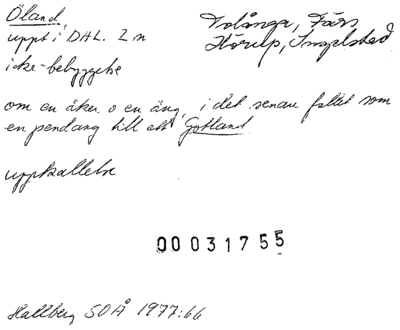 Öland
Tolånga, Färs
uppt i DAL. 2 n
Hörup, Ingelstad
icke-bebyggelse
om en åker o en äng, i det senare fallet som
en pendang till ett Gotland
uppkallelse
00031755
Hallberg SOÅ 1977:66